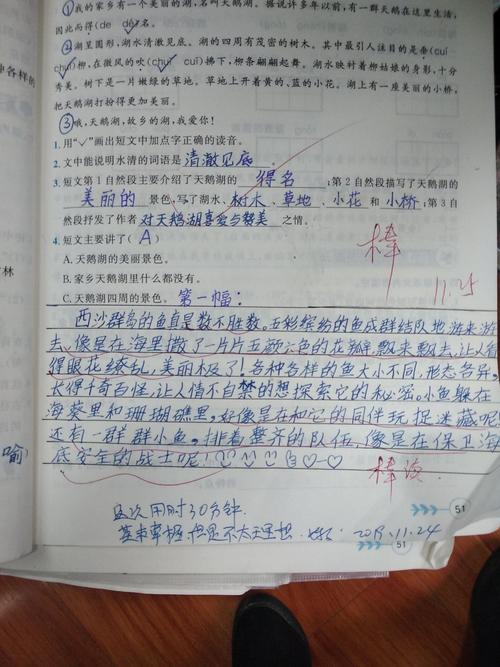 ①我的家乡有一个美丽的湖,名叫天鹅湖。据说许多年以前,有一群天鹅在这里生活,
因此而得(de dé)名。
②湖呈圆形,湖水清澈见底。湖的四周有茂密的树木。其中最引人注目的是垂(cuí
chuí)柳,在微风的吹(chuī cuī)拂下,柳条翩翩起舞。湖水映衬着柳姑娘的身影,十分
秀美。树下是一片嫩绿的草地。草地上开着黄的、蓝的小花。湖上有一座美丽的小桥,
把天鹅湖打扮得更加美丽。
③哦,天鹅湖,故乡的湖,我爱你!
1.用“✓”画出短文中加点字正确的读音。
2.文中能说明水清的词语是 清澈见底 。
3.短文第1自然段主要介绍了天鹅湖的 得名 ;第2自然段描写了天鹅湖的
美丽的 景色,写了湖水、树木、草地、小花 和 小桥;第3自
然段抒发了作者 对天鹅湖喜爱与赞美 之情。
4.短文主要讲了( A )
A.天鹅湖的美丽景色。
棒
B.家乡天鹅湖里什么都没有。
11.25
C.天鹅湖四周的景色。 第一幅:
西沙群岛的鱼真是数不胜数。五彩缤纷的鱼成群结队地游来游
去,像是在海里撒了一片片五颜六色的花瓣,飘来飘去,让人看
得眼花缭乱,美丽极了!各种各样的鱼大小不同,形态各异。
长得千奇百怪,让人情不自禁的想探索它的秘密。小鱼躲在
海葵里和珊瑚礁里,好像是在和它的同伴玩捉迷藏呢!
还有一群群小鱼。排着整齐的队伍,像是在保卫海
底安全的战士呢!
喻)
棒
这次用时30分钟.
基本掌握,但是不太理想. 2019.11.24
51
51